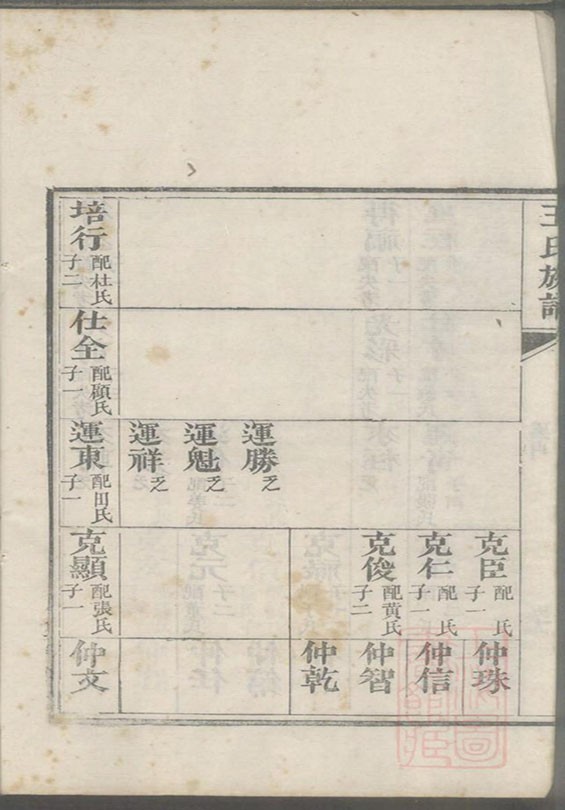 王氏族譜
運勝 乏
運魁 乏
運祥 乏
克臣 配 氏 子一
克仁 配 氏 子一
克俊 配黄氏 子二
仲珠
仲信
仲智
仲乾
培行 配杜氏 子二
仕全 配顧氏 子一
運東 配田氏 子一
克顯 配張氏 子一
仲文